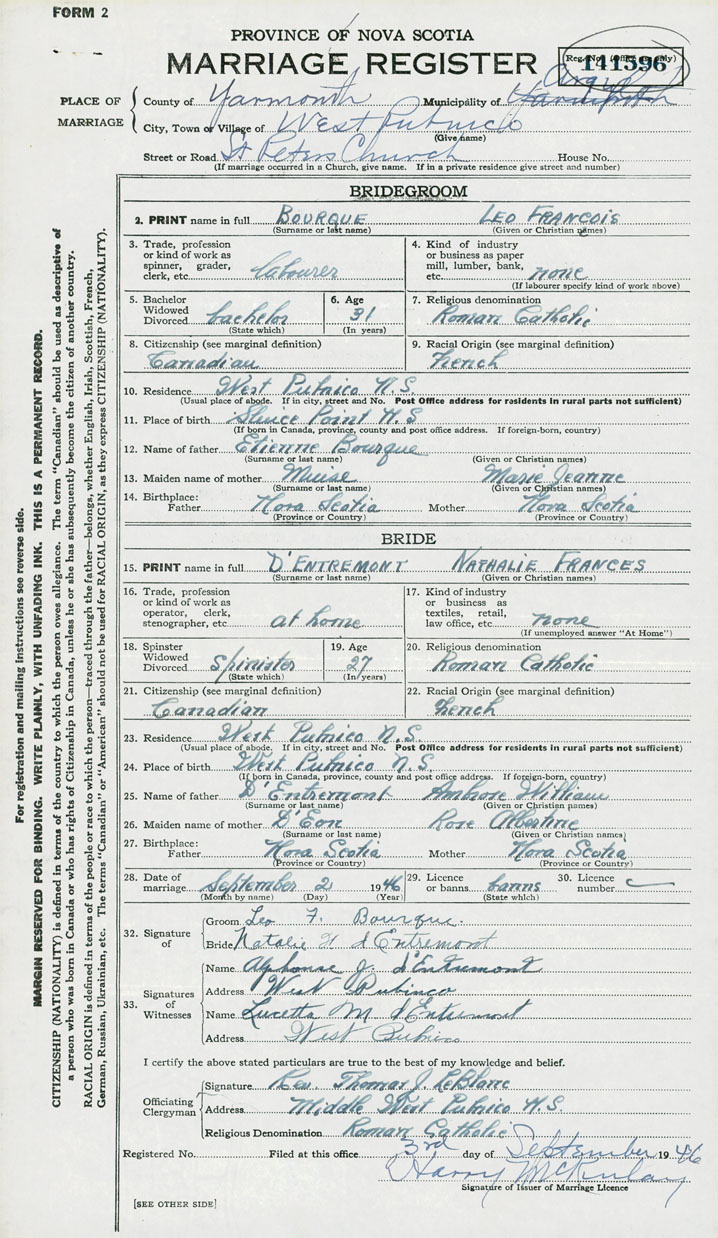 FORM 2
PROVINCE OF NOVA SCOTIA
MARRIAGE REGISTER
Reg. No. (Office use only)
141596
PLACE OF MARRIAGE
County of Yarmouth Municipality of Argyle
City, Town or Village of West Pubnico
(Give name)
Street or Road St Peters Church House No.
(If marriage occurred in a Church, give name. If in a private residence give street and number)
BRIDEGROOM
2. PRINT name in full BOURQUE LEO FRANCOIS
(Surname or last name) (Given or Christian names)
3. Trade, profession or kind of work as spinner, grader, clerk, etc. labourer
4. Kind of industry or business as paper mill, lumber, bank, etc. none
(If labourer specify kind of work above)
5. Bachelor Widowed Divorced bachelor
(State which)
6. Age 31
(In years)
7. Religious denomination
Roman Catholic
8. Citizenship (see marginal definition)
Canadian
9. Racial Origin (see marginal definition)
French
10. Residence West Pubnico N.S.
(Usual place of abode. If in city, street and No. Post Office address for residents in rural parts not sufficient)
11. Place of birth Sluice Point N.S
(If born in Canada, province, county and post office address. If foreign-born, country)
12. Name of father Etienne Bourque
(Surname or last name) (Given or Christian names)
13. Maiden name of mother Muise Marie Jeanne
(Surname or last name) (Given or Christian names)
14. Birthplace: Father Nova Scotia Mother Nova Scotia
(Province or Country) (Province or Country)
BRIDE
15. PRINT name in full D'ENTREMONT NATHALIE FRANCES
(Surname or last name) (Given or Christian names)
16. Trade, profession or kind of work as operator, clerk, stenographer, etc. at home
17. Kind of industry or business as textiles, retail, law office, etc. none
(If unemployed answer "At Home")
18. Spinster Widowed Divorced Spinister
(State which)
19. Age 27
(In years)
20. Religious denomination
Roman Catholic
21. Citizenship (see marginal definition)
Canadian
22. Racial Origin (see marginal definition)
French
23. Residence West Pubnico N.S.
(Usual place of abode. If in city, street and No. Post Office address for residents in rural parts not sufficient)
24. Place of birth West Pubnico N.S.
(If born in Canada, province, county and post office address. If foreign-born, country)
25. Name of father D'Entremont Ambrose William
(Surname or last name) (Given or Christian names)
26. Maiden name of mother D'Eon Rose Albertine
(Surname or last name) (Given or Christian names)
27. Birthplace: Father Nova Scotia Mother Nova Scotia
(Province or Country) (Province or Country)
28. Date of marriage September 2 1946
(Month by name) (Day) (Year)
29. Licence or banns banns
(State which)
30. Licence number
32. Signature of
Groom Leo F. Bourque.
Bride Natalie F d'Entremont
33. Signatures of Witnesses
Name Alphonse J. d'Entremont
Address West Pubnico
Name Lucetta M d'Entremont
Address West Pubnico
I certify the above stated particulars are true to the best of my knowledge and belief.
Officiating Clergyman
Signature Rev. Thomas J. LeBlanc
Address Middle West Pubnico N.S.
Religious Denomination Roman Catholic
Registered No. Filed at this office 3rd day of September 1946
Harry McKinlay
Signature of Issuer of Marriage Licence
[SEE OTHER SIDE]
For registration and mailing instructions see reverse side.
MARGIN RESERVED FOR BINDING. WRITE PLAINLY, WITH UNFADING INK. THIS IS A PERMANENT RECORD.
CITIZENSHIP (NATIONALITY) is defined in terms of the country to which the person owes allegiance. The term "Canadian" should be used as descriptive of
a person who was born in Canada or who has rights of Citizenship in Canada, unless he or she has subsequently become the citizen of another country.
RACIAL ORIGIN is defined in terms of the people or race to which the person—traced through the father—belongs, whether English, Irish, Scottish, French,
German, Russian, Ukrainian, etc. The terms "Canadian" or "American" should not be used for RACIAL ORIGIN, as they express CITIZENSHIP (NATIONALITY).